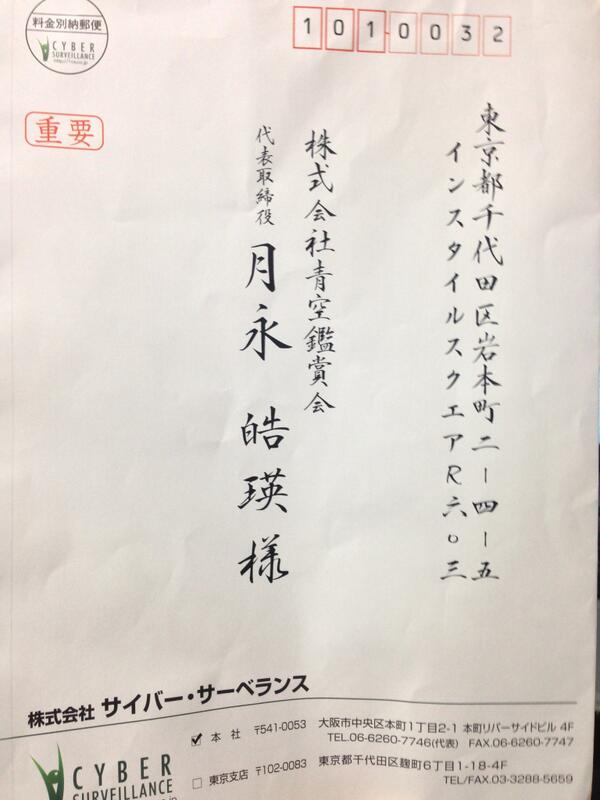 料金別納郵便
CYBER
SURVEILLANCE
1010032
重要
東京都千代田区岩本町二ー四ー五
インスタイルスクエアR六〇三
株式会社青空鑑賞会
代表取締役 月永 皓瑛 様
株式会社 サイバー・サーベランス
本社 〒541-0053 大阪市中央区本町1丁目2-1 本町リバーサイドビル 4F
TEL.06-6260-7746(代表) FAX.06-6260-7747
東京支店 〒102-0083 東京都千代田区麹町6丁目1-18-4F
TEL/FAX.03-3288-5659
CYBER
SURVEILLANCE